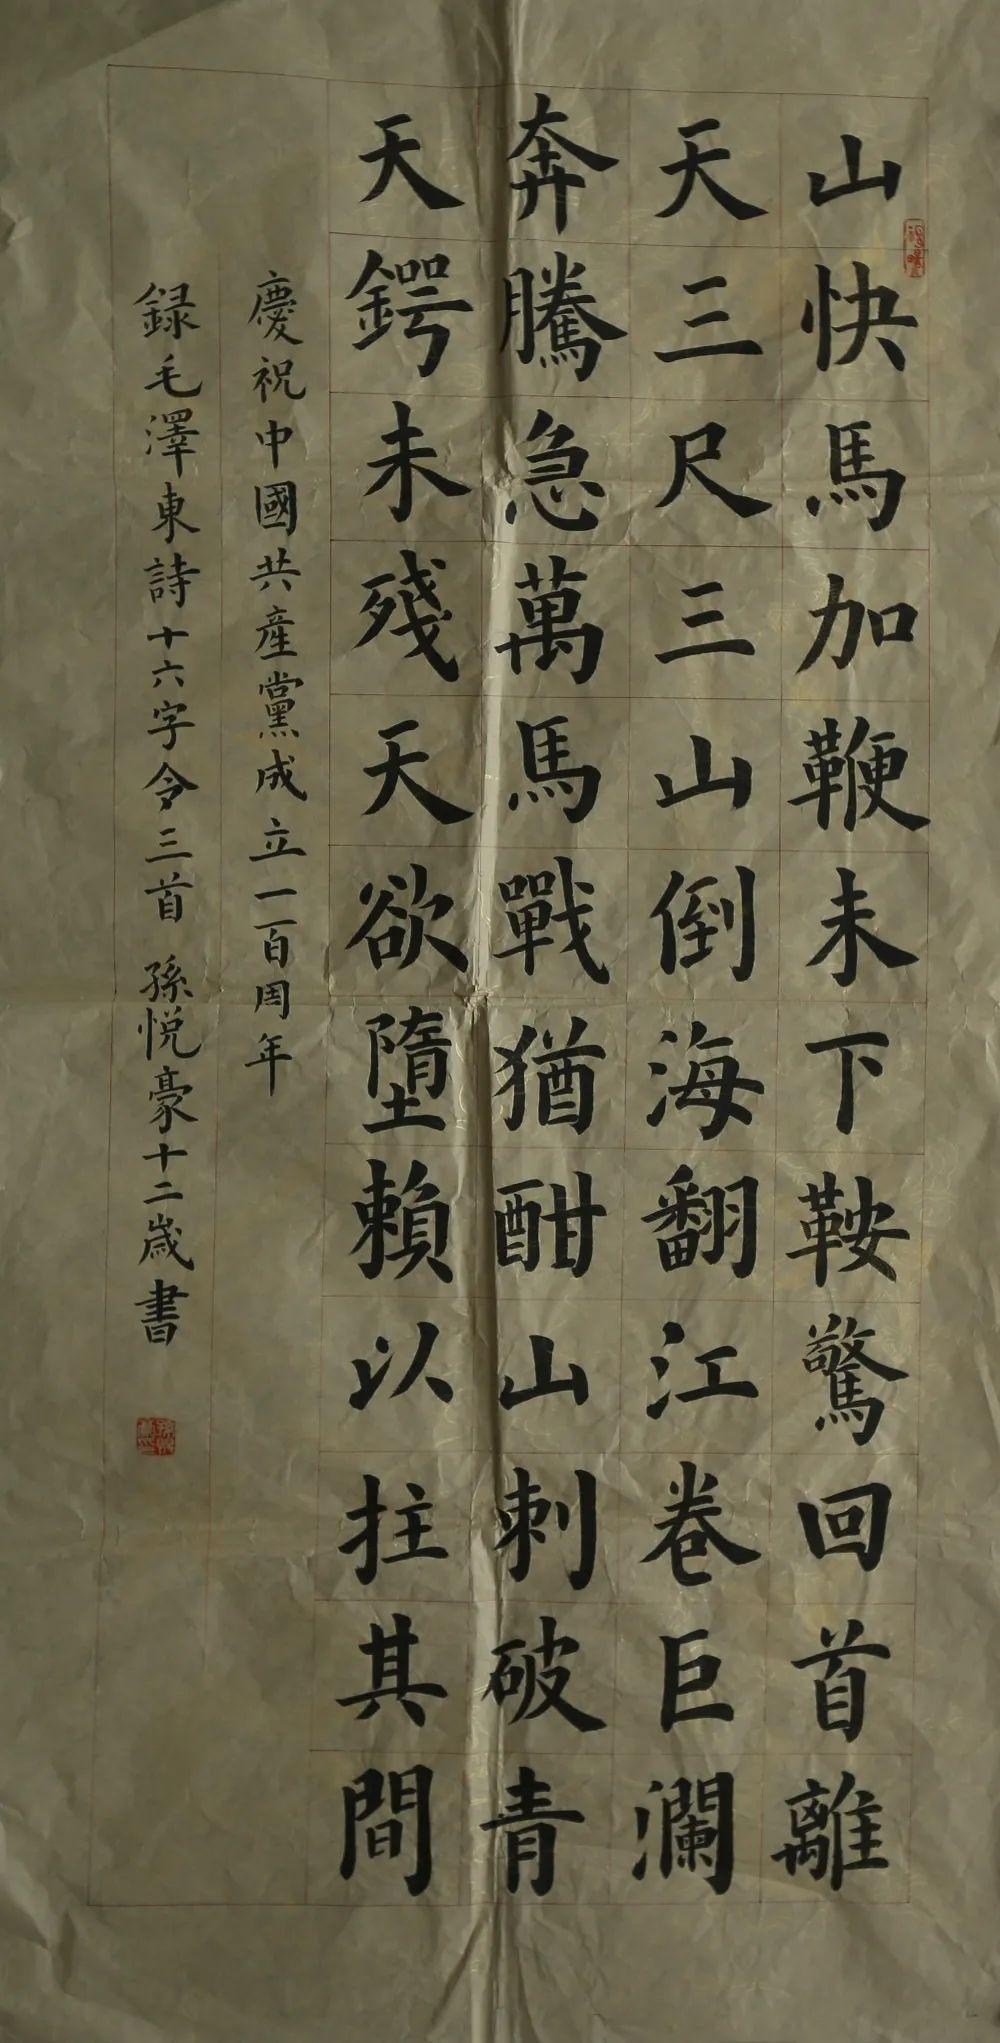 山快馬加鞭未下鞍驚回首離
天三尺三山倒海翻江卷巨瀾
奔騰急萬馬戰猶酣山刺破青
天鍔未殘天欲墮賴以拄其間
慶祝中國共產黨成立一百周年
録毛澤東詩十六字令三首 孫悦豪十二歲書